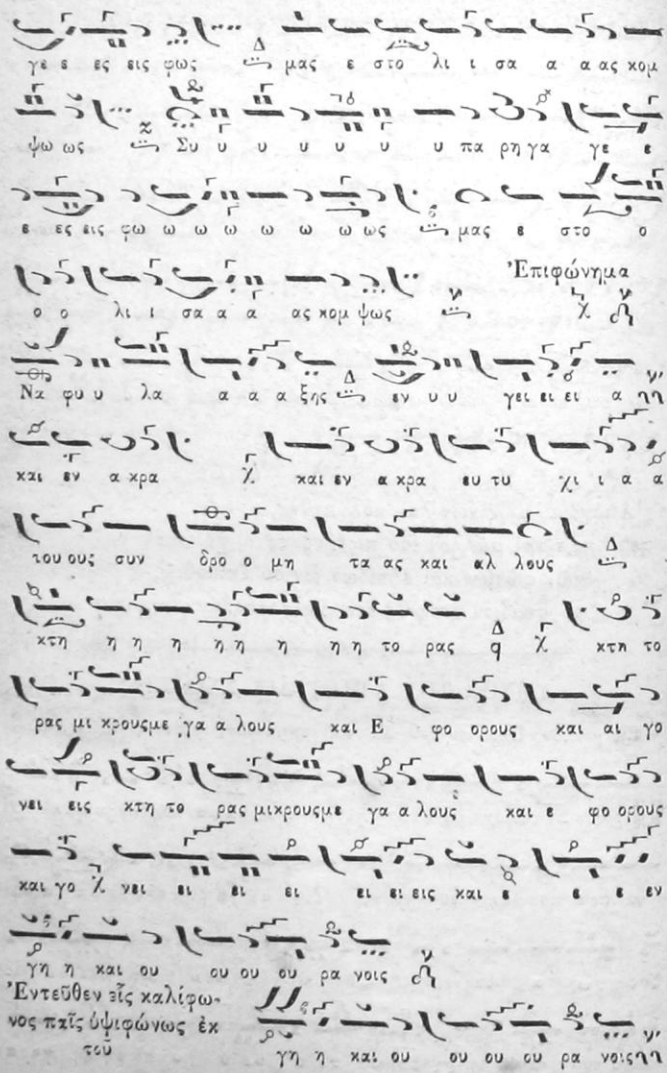 γε ε ες εις φως Δ μας ε στο λι ι σα α α ας κομ
ψω ως Συ υ υ υ υ υ υ πα ρη γα γε ε
ε ες εις φω ω ω ω ω ω ω ως μας ε στο ο
Ἐπιφώνημα
ο ο λι ι σα α α ας κομ ψως
Να φυ υ λα α α α ξης Δ εν υ υ γει ει ει α
και εν α κρα χ και εν α κρα ευ τυ χι ι α α
του ους συν δρο ο μη τα ας και αλ λους Δ
κτη η η η η η η η η το ρας Δ q χ κτη το
ρας μι κρους με γα α λους και Ε φο ορους και αι γο
νει εις κτη το ρας μικρους με γα α λους και ε φο ορους
και γο χ νει ει ει ει ει ει εις και ε ε ε εν
γη η και ου ου ου ου ρα νοις
Ἐντεῦθεν εἷς καλίφω-
νος παῖς ὑψιφώνως ἐκ
τοῦ
γη η και ου ου ου ου ρα νοις